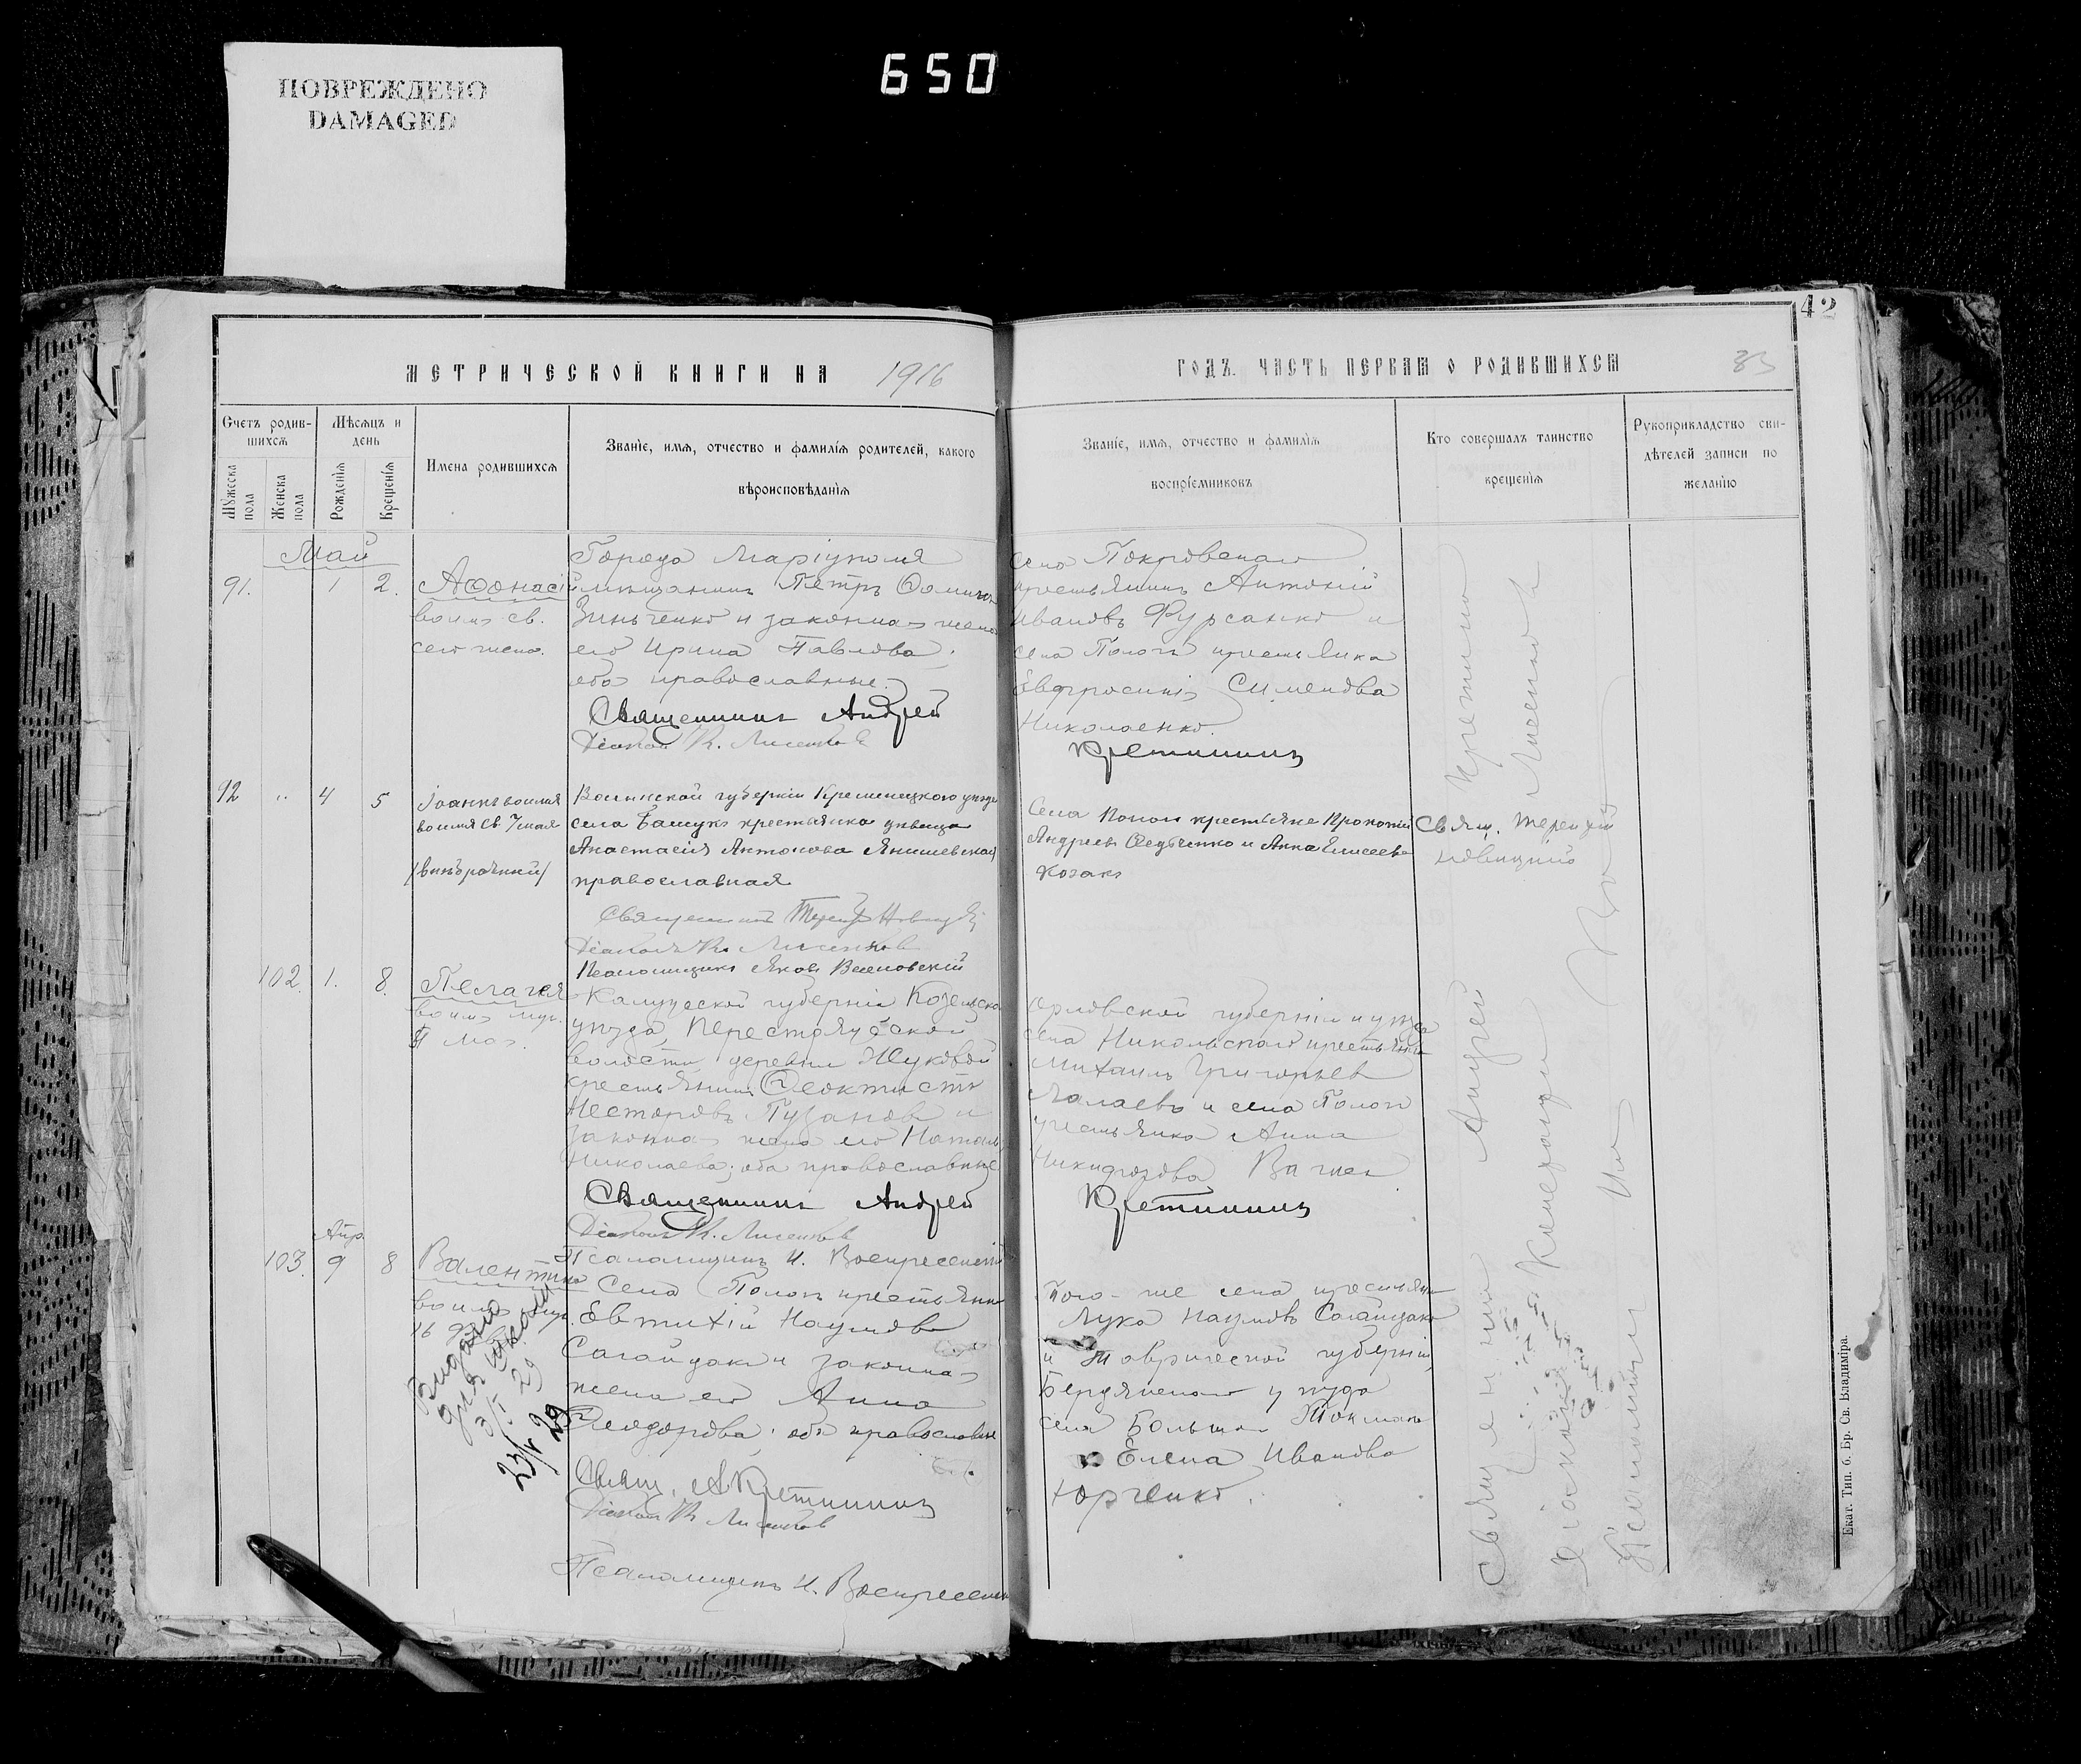 ПОВРЕЖДЕНО
DAMAGED
650
42
МЕТРИЧЕСКОЙ КНИГИ НА 1916
ГОДЪ. ЧАСТЬ ПЕРВАЯ О РОДИВШИХСЯ
83
Счетъ родив-
шихся
Мужеска
пола
Женска
пола
Мѣсяцъ и
день
Рожденія
Крещенія
Имена родившихся
Званіе, имя, отчество и фамилія родителей, какого
вѣроисповѣданія
Званіе, имя, отчество и фамилія
воспріемниковъ
Кто совершалъ таинство
крещенія
Рукоприкладство сви-
дѣтелей записи по
желанію
Май
91. 1 2. Аѳонасій
во имя св.
сего
Города Маріуполя
мѣщанинъ Петръ
Зиньченко и законная жена
его Ирина Павлова;
оба православные.
Священникъ Андрей
Діаконъ К. Лисенков
Села Покровскаго
крестьянинъ Антоній
Ивановъ Фурсенко и
села Пологъ крестьянка
Евфросинія Сименова
Николаенко.
Кретининъ
92 " 4 5 Іоаннъ
во имя св. 7 мая
/внѣбрачный/
Волынской губерніи Кременецкого уѣзда
села Башукъ крестьянка дѣвица
Анастасія Антонова Янишевская
православная
Священникъ Терентій Новицкій
Діаконъ К. Лисенков
Псаломщикъ Яковъ
Села Пологъ крестьяне Прокопій
Андреевъ Ѳедченко и Анна Елисеева
Козакъ
Свящ. Терентій
Новицкій
102. 1. 8. Пелагея
во имя муч.
4 мая.
Калужской губерніи Козельского
уѣзда,
волости, деревни Жуковой
крестьянинъ Ѳеоктистъ
Несторовъ Пузановъ и
законная жена его Наталія
Николаева; оба православные
Священникъ Андрей
Діаконъ К. Лисенков
Псаломщикъ И. Воскресенскій
Орловской губерніи и уѣзда
села Никольскаго крестьянинъ
Михаилъ Григорьев
и села Пологъ
крестьянка Анна
Никифорова
Кретининъ
Апр.
103. 9 8 Валентина
во имя муч.
16
Видано
для школи
3/I 29
23/V 29
Села Пологъ крестьянинъ
Евтихій Наумовъ
Сагайдакъ и законная
жена его Анна
Ѳеодорова; оба православные
Свящ. А. Кретининъ
Діаконъ К. Лисенков
Псаломщикъ И. Воскресенскій
Того-же села крестьянинъ
Лука Наумовъ Сагайдакъ
и Таврической губерніи,
Бердянскаго уѣзда
села Большой Токмакъ
Елена Иванова
Юрченко.
Священникъ Андрей Кретининъ
Діаконъ Лисенков
Екат. Тип. б. Бр. Св. Владиміра.